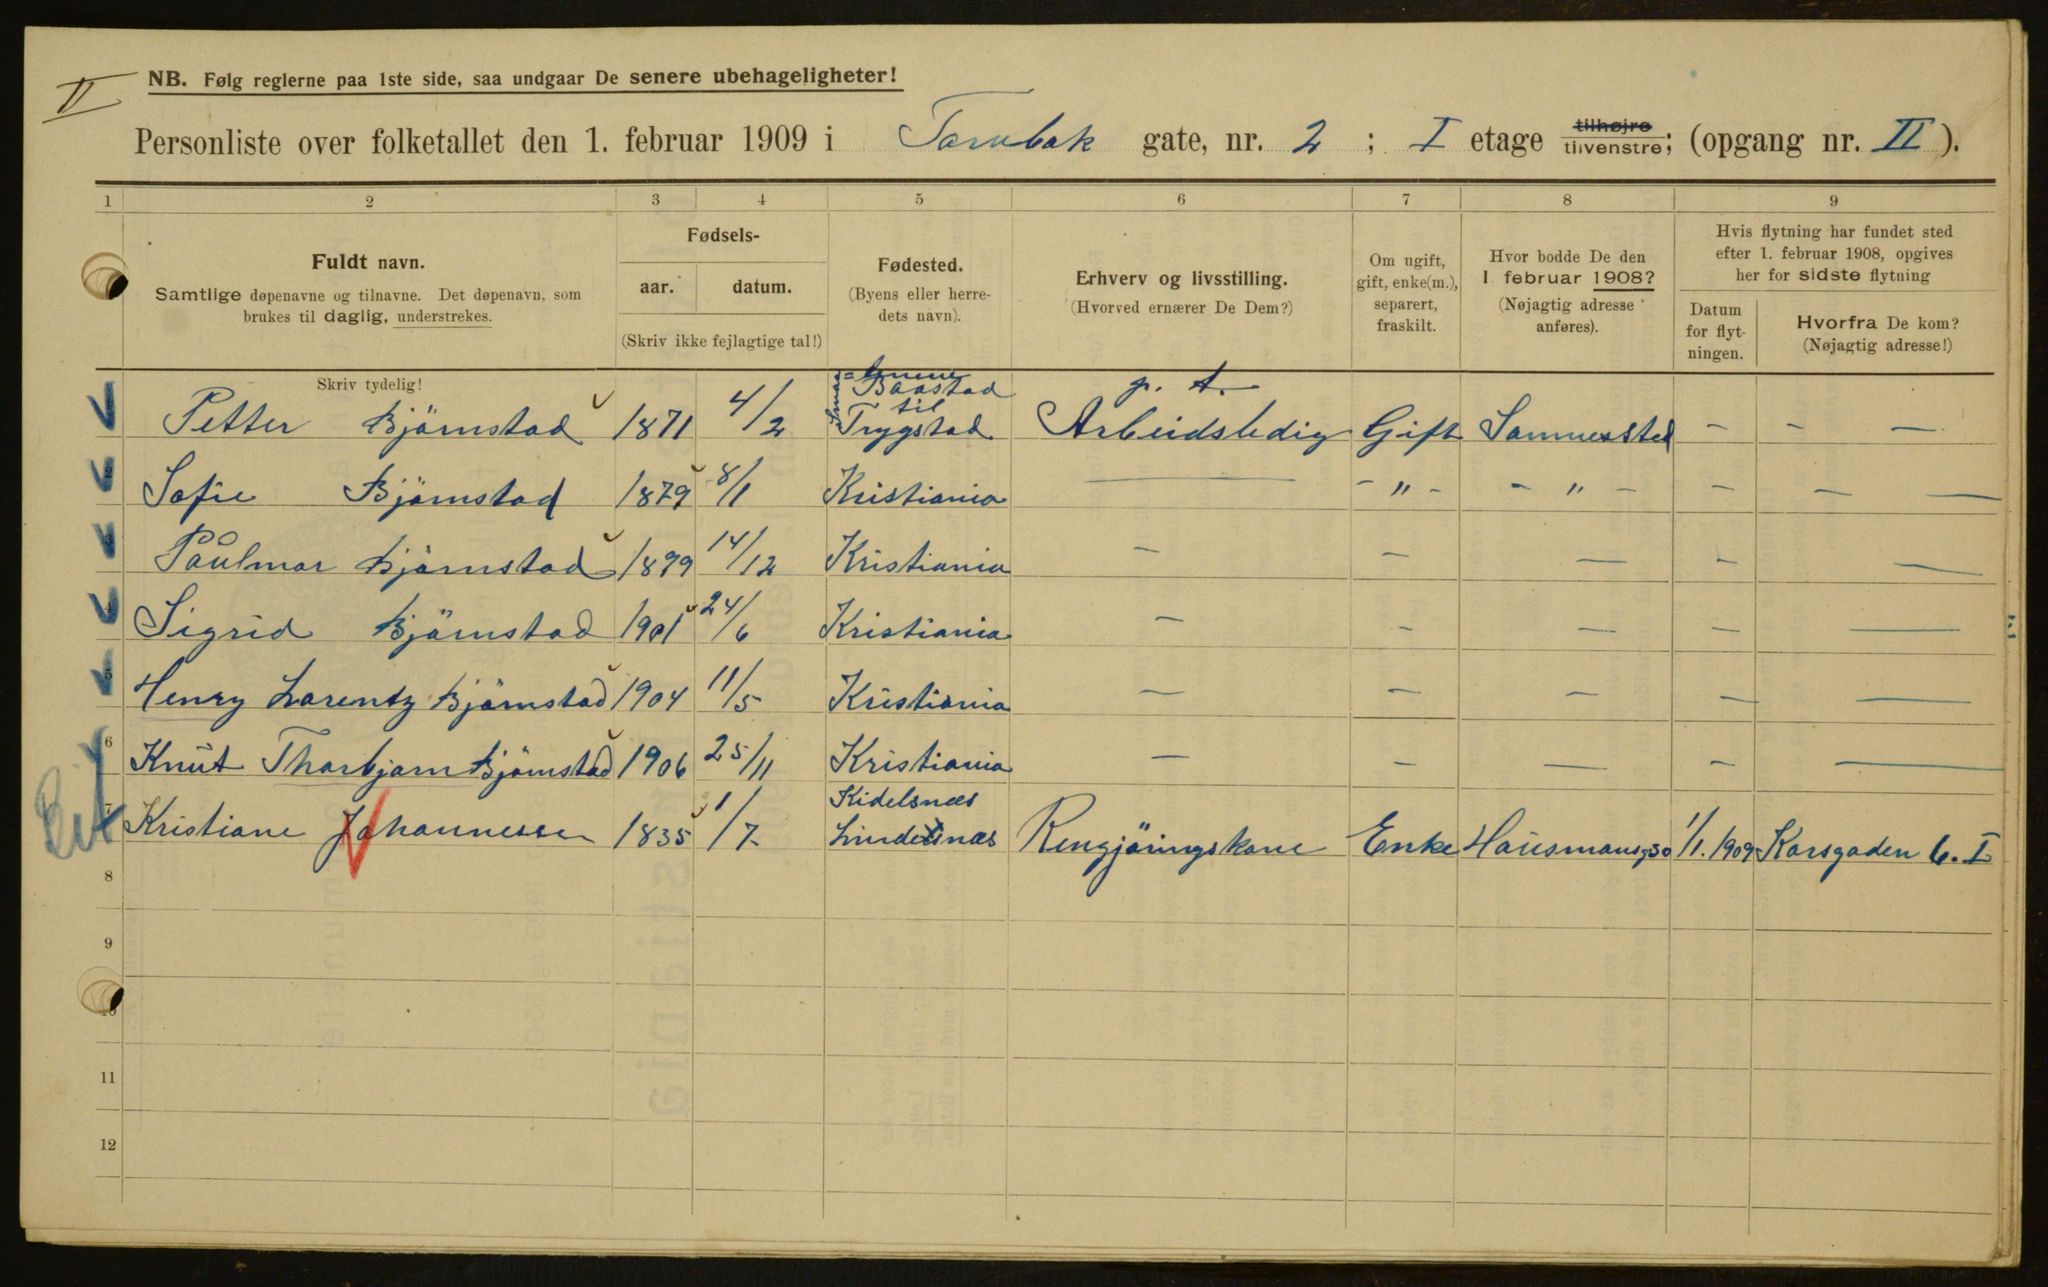 II
NB. Følg reglerne paa 1ste side, saa undgaar De senere ubehageligheter!
Personliste over folketallet den 1. februar 1909 i Tornbak gate, nr. 2 ; I etage tilhøjre tilvenstre; (opgang nr. II ).
1 2 3 4 5 6 7 8 9
Fuldt navn.
Samtlige døpenavne og tilnavne. Det døpenavn, som
brukes til daglig, understrekes.
Fødsels-
aar. datum.
(Skriv ikke fejlagtige tal!)
Fødested.
(Byens eller herre-
dets navn).
Erhverv og livsstilling.
(Hvorved ernærer De Dem?)
Om ugift,
gift, enke(m.),
separert,
fraskilt.
Hvor bodde De den
1. februar 1908?
(Nøjagtig adresse
anføres).
Hvis flytning har fundet sted
efter 1. februar 1908, opgives
her for sidste flytning
Datum
for flyt-
ningen.
Hvorfra De kom?
(Nøjagtig adresse!)
Skriv tydelig!
Smaalenene
Baastad p. t.
til
Petter Björnstad 1871 4/2 Trygstad Arbeidsledig Gift Sammested – – –
Sofie Björnstad 1879 8/1 Kristiania — – " – – " – – –
Paulmar Björnstad 1899 14/12 Kristiania – – – – –
Sigrid Björnstad 1901 24/6 Kristiania – – – – –
5 Henry Lorentz Björnstad 1904 11/5 Kristiania – – – – –
6 Knut Thorbjørn Björnstad 1906 25/11 Kristiania – – – – –
Kidelsnæs
7 Kristiane Johannessen 1835 1/7 Lindesnæs Rengjöringskone Enke Hausmansg 30 1/1. 1909 Korsgaden 6. I
8
9
10
11
12